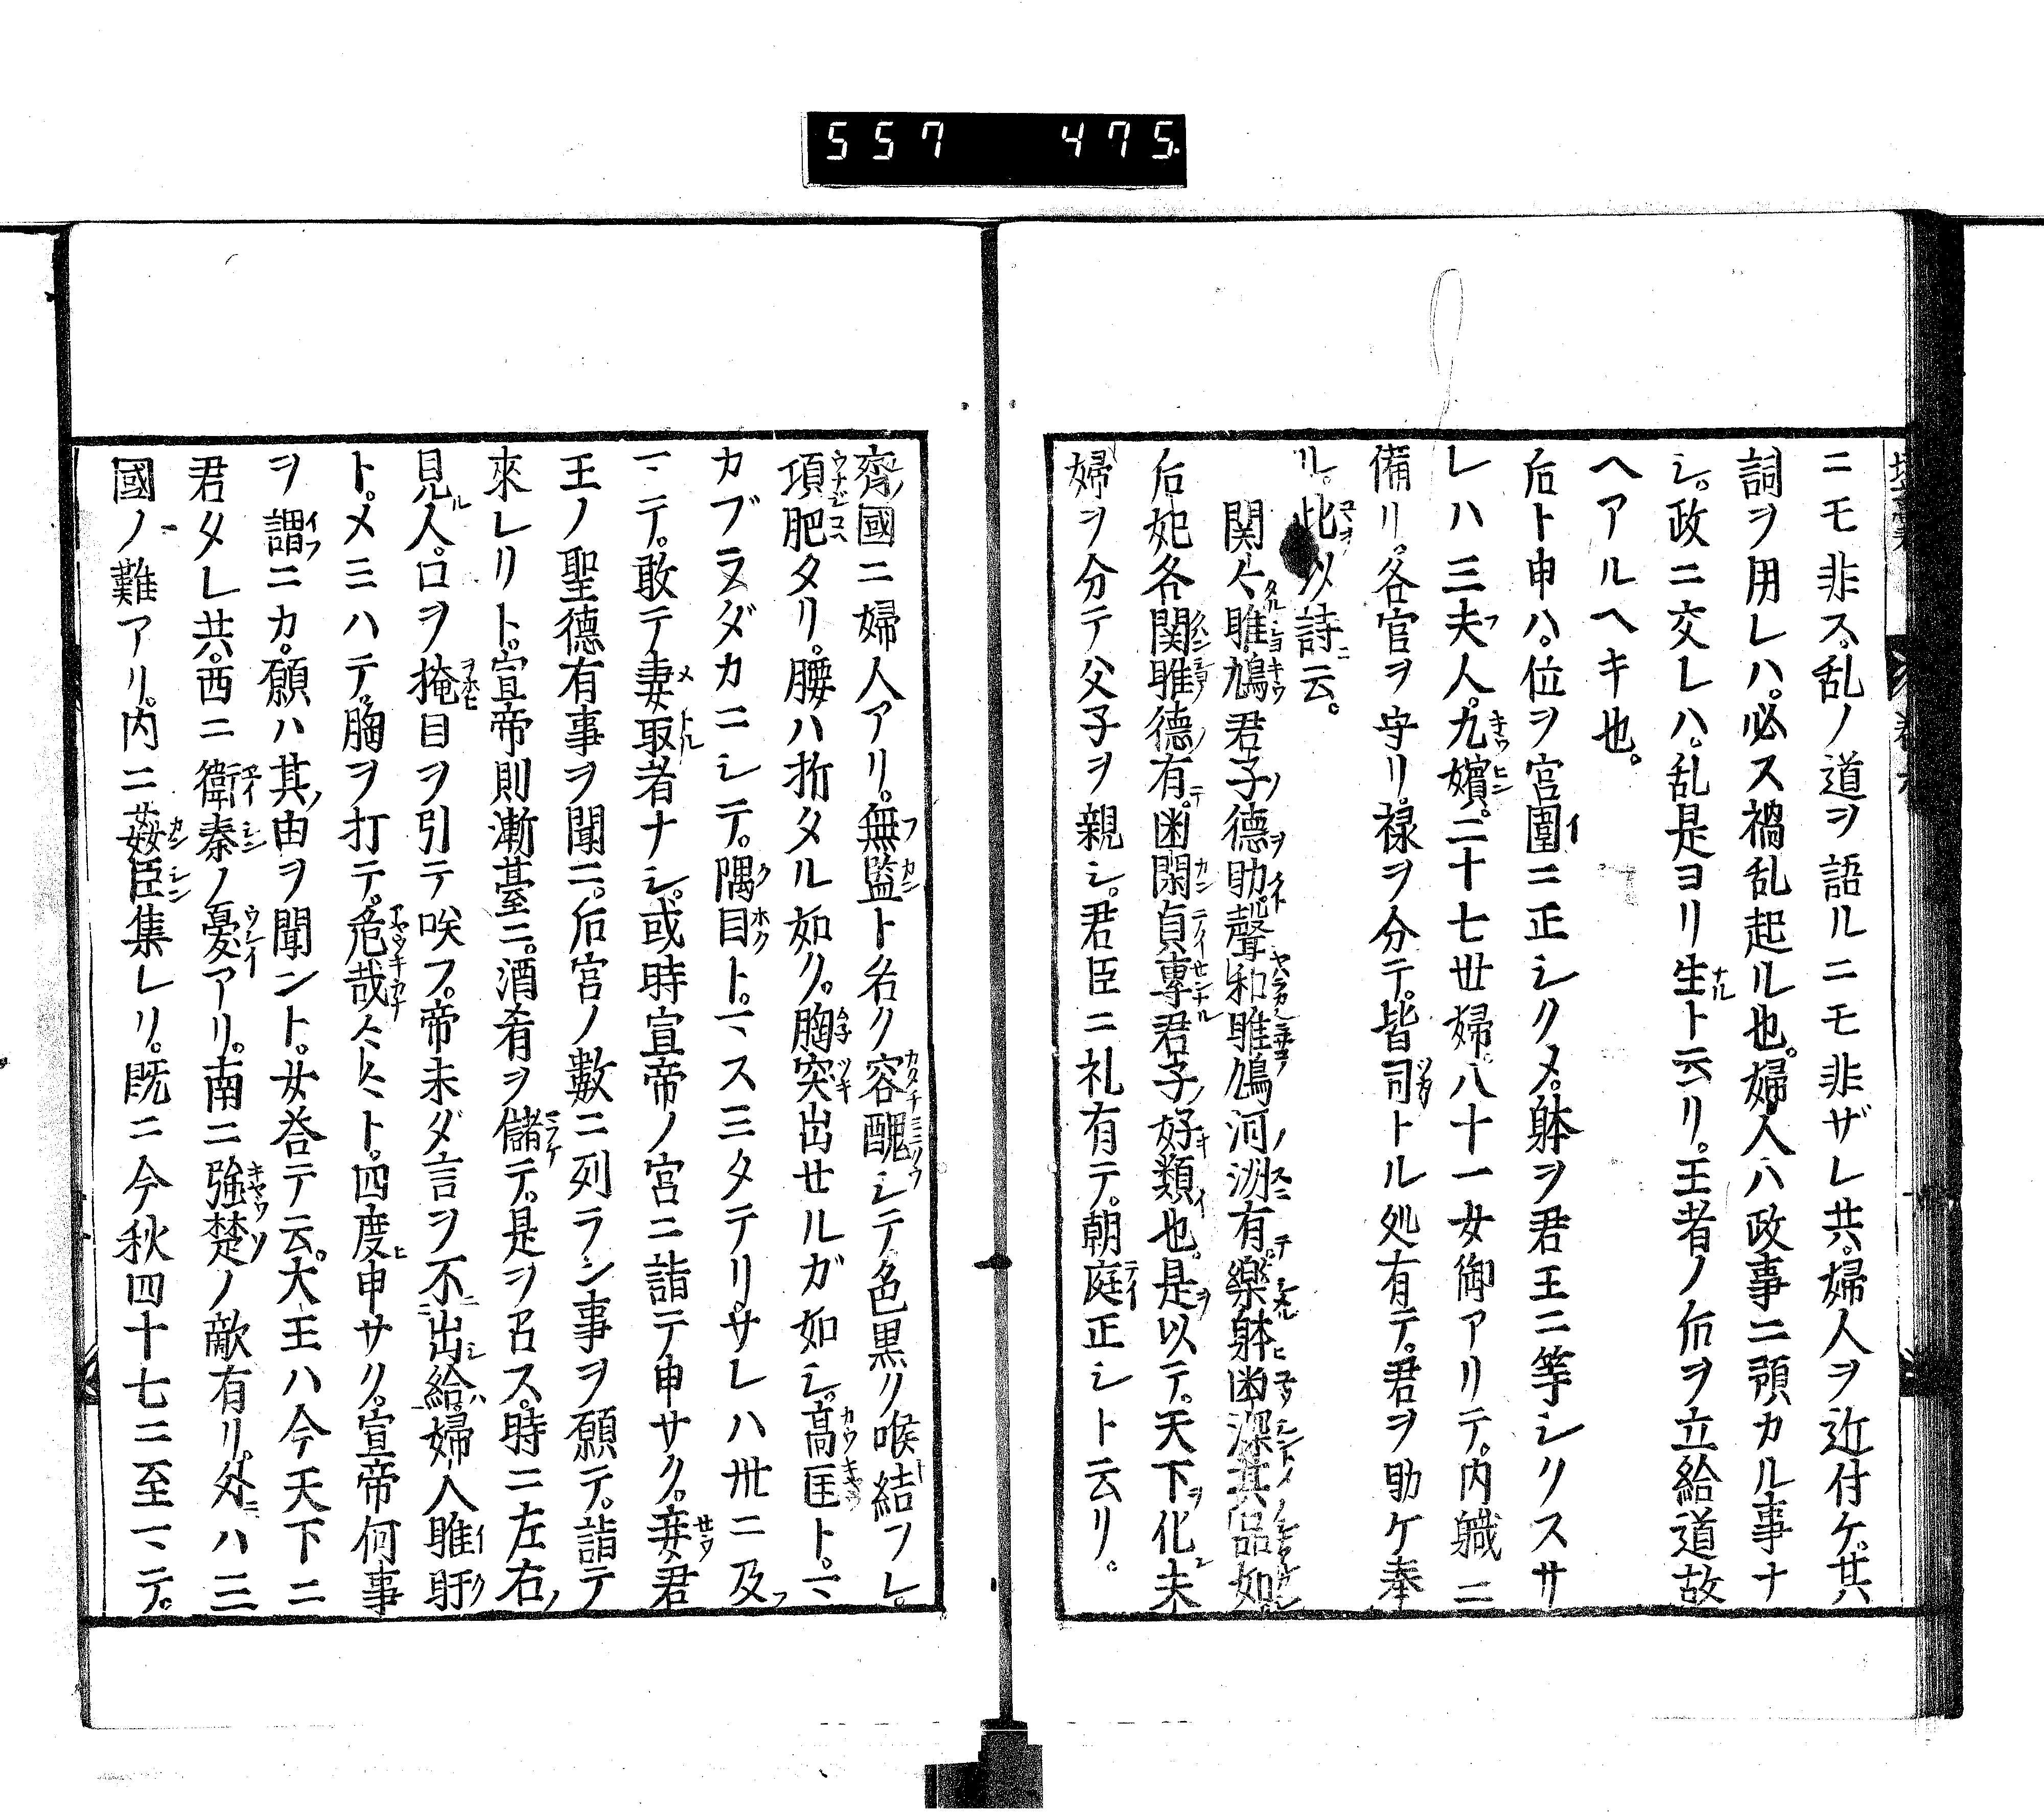 557 475.
ニモ非ス。乱ノ道ヲ語ルニモ非ザレ共。婦人ヲ近付ケ。其
詞ヲ用レハ。必ス禍乱起ル也。婦人ハ政事ニ預カル事ナ
シ。政ニ交レハ。乱是ヨリ生ト云リ。王者ノ后ヲ立給道故
ヘアルヘキ也。
后ト申ハ。位ヲ宮圍ニ正シクメ。躰ヲ君王ニ等シクスサ
レハ三夫人。九嬪。二十七世婦。八十一女御アリテ。内職ニ
備リ。各官ヲ守リ。禄ヲ分テ。皆司トル処有テ。君ヲ助ケ奉
ル。此以詩云。
関々雎鳩君子德助。聲和雎鳩河洲有。樂躰幽深其品如。
后妃各関雎德有。幽閑貞專君子好類也。是以テ。天下化夫
婦ヲ分テ父子ヲ親シ。君臣ニ礼有テ。朝庭正シト云リ。
齊國ニ婦人アリ。無監ト名ク容醜シテ色黒ク喉結フレ。
項肥タリ。腰ハ折タル如ク。胸突出セルガ如シ。高匡ト。一ヽ
カブラヌダカニシテ。隅目ト。一ヽスミタテリ。サレハ丗ニ及
一ヽテ。敢テ妻取者ナシ。或時宣帝ノ宮ニ詣テ申サク。妾君
王ノ聖德有事ヲ聞ニ。后宮ノ數ニ列ラン事ヲ願テ。詣テ
來レリト。宣帝則漸䑓ニ。酒肴ヲ儲テ。是ヲ召ス。時ニ左右
見人。口ヲ掩目ヲ引テ咲フ。帝未ダ言ヲ不出給。婦人雎盱
ト。メミハテ。胸ヲ打テ。危哉々ト。四度申サク。宣帝何事
ヲ謂ニカ。願ハ其由ヲ聞ント。女答テ云。大王ハ今天下ニ
君タレ共。西ニ衛秦ノ憂アリ。南ニ強楚ノ敵有リ。外ニハ三
國ノ難アリ。内ニ姦臣集レリ。既ニ今秋四十七ニ至一ヽテ。